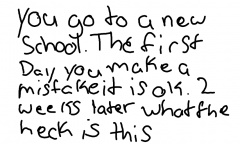 you go to a new
School. The first
Day you make a
mistake it is ok. 2
weeks later what the
heck is this